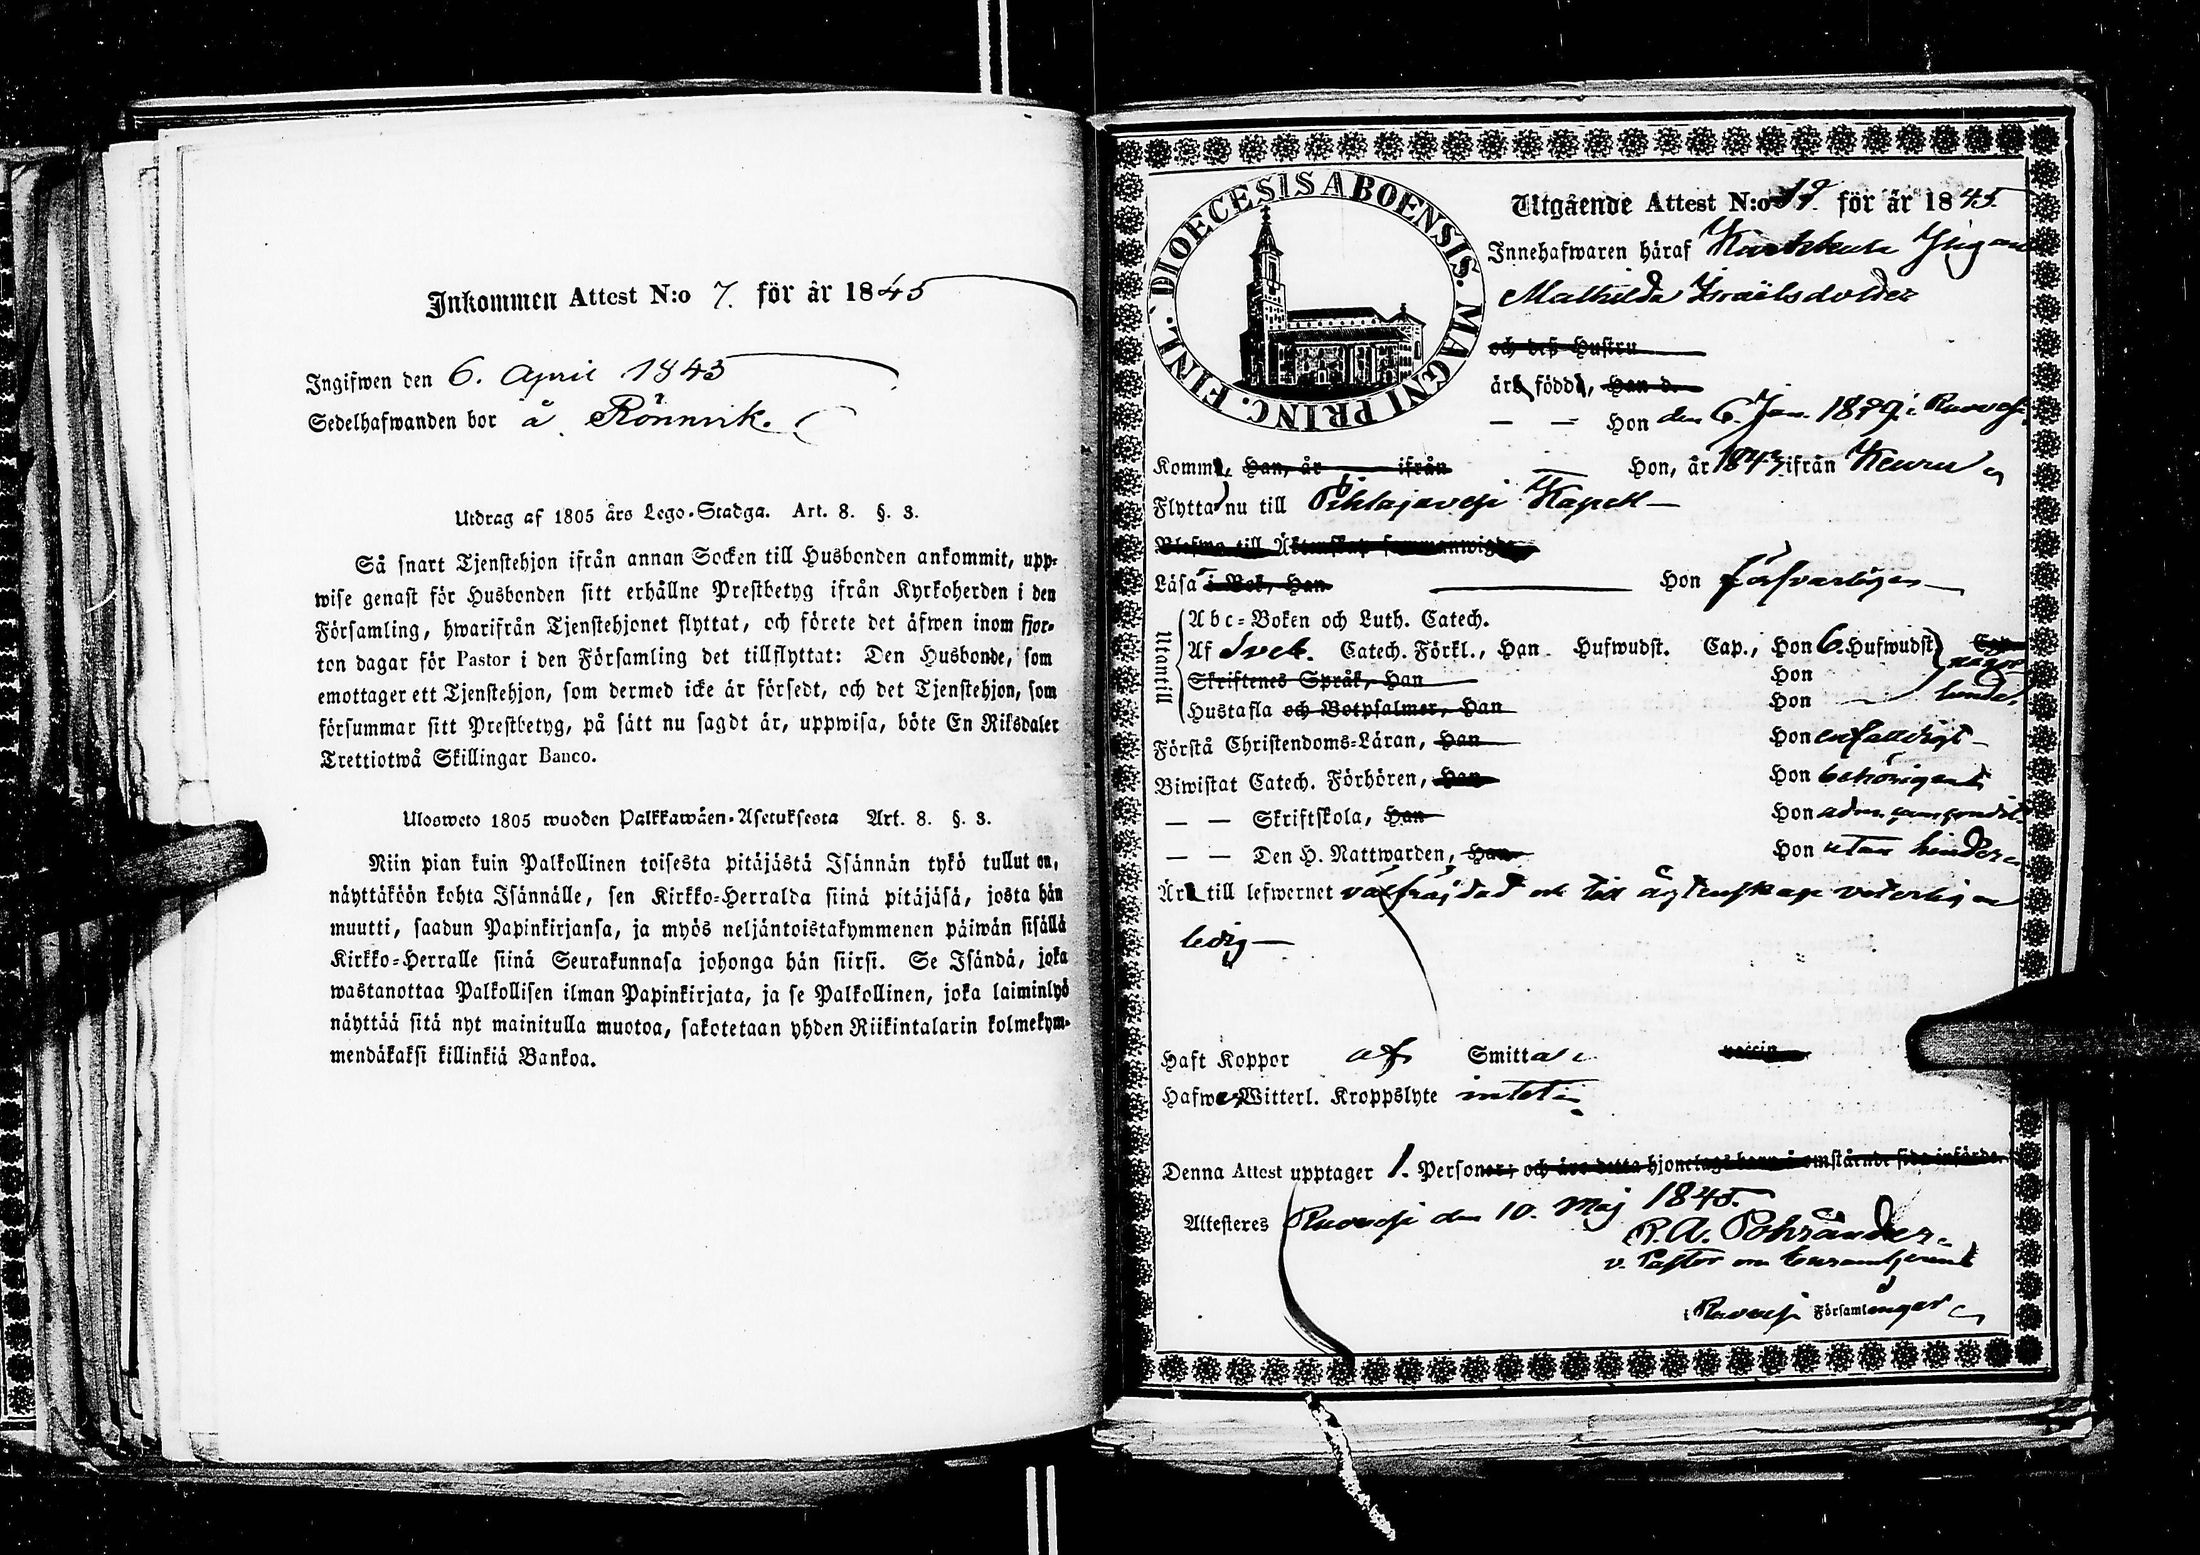 Inkommen Attest N:o 7. för år 1845
Ingifwen den 6. April 1845
Sedelhafwanden bor å Rönnvik.
Utdrag af 1805 års Lego-Stadga. Art. 8. §. 3.
Så snart Tjenstehjon ifrån annan Socken till Husbonden ankommit, upp-
wise genast för Husbonden sitt erhållne Prestbetyg ifrån Kyrkoherden i den
Församling, hwarifrån Tjenstehjonet flyttat, och förete det äfwen inom fjor-
ton dagar för Pastor i den Församling det tillflyttat: Den Husbonde, som
emottager ett Tjenstehjon, som dermed icke är försedt, och det Tjenstehjon, som
försummar sitt Prestbetyg, på sätt nu sagdt är, uppwisa, böte En Riksdaler
Trettiotwå Skillingar Banco.
Ulosweto 1805 wuoden Palkkawäen-Asetuksesta Art. 8. §. 3.
Niin pian kuin Palkollinen toisesta pitäjästä Isännän tykö tullut on,
näyttäköön kohta Isännälle, sen Kirkko-Herralda siinä pitäjäsä, josta hän
muutti, saadun Papinkirjansa, ja myös neljäntoistakymmenen päiwän sisällä
Kirkko-Herralle siinä Seurakunnasa johonga hän siirsi. Se Isändä, joka
wastanottaa Palkollisen ilman Papinkirjata, ja se Palkollinen, joka laiminlyö
näyttää sitä nyt mainitulla muotoa, sakotetaan yhden Riikintalarin kolmekym-
mendäkaksi killinkiä Bankoa.
DIOECESIS ABOENSIS. MAGNI PRINC. FINL.
Utgående Attest N:o 19. för år 1845
Innehafwaren häraf Pigan
Mathilda Israëlsdotter
och deß Hustru
är född, Han d.
— — Hon den 6. Jan. i Ruovesi
Komm, Han, år ifrån — Hon, år 1843 ifrån Keuru
Flytta nu till Pihlajavesi Kapell
Blefwo till Äktenskap sammanwigde
Läsa i Bok, Han Hon försvarligen
Utantill
Abc-Boken och Luth. Catech.
Af Sveb. Catech. Förkl., Han Hufwudst. Cap., Hon 6. Hufwudst. Cap.
Skriftenes Språk, Han Hon någor
Hustafla och Botpsalmer, Han Hon lunda.
Förstå Christendoms-Läran, Han Hon enfaldigt
Biwistat Catech. Förhören, Han Hon behörigen
— — Skriftskola, Han Hon
— — Den H. Nattwarden, Han Hon utan hinder
Är till lefwernet välfrägdad och till ägtenskap veterligen
ledig
Haft Koppor af Smitta vaccin
Hafwer Witterl. Kroppslyte intet
Denna Attest upptager 1. Personer, och äro detta hjonelags barn å omstående sida införde.
Attesteres Ruovesi den 10. Maj 1845.
v. Pastor
i Ruovesi Församlingar